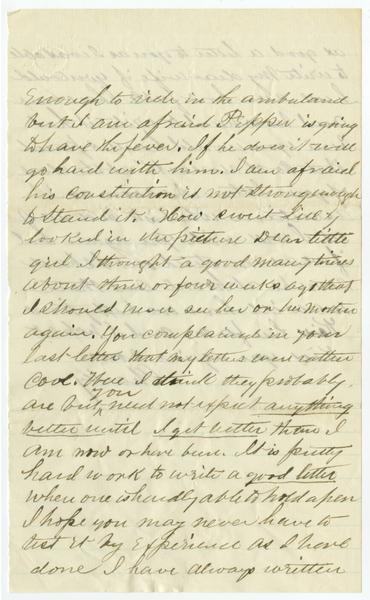 Enough to ride in the ambulance
but I am afraid Pipper is going
to have the fever. If he does it will
go hard with him. I am afraid
his constitution is not strong enough
to stand it. How sweet
looked in the picture Dear little
girl I thought a good many times
about three or four weeks ago that
I should never see her or her mother
again. You complained in your
last letter that my letters were rather
cool. Well I think they probably
are but you need not expect anything
better until I get better than I
am now or have been. It is pretty
hard work to write a good letter
when one is hardly able to hold a pen
I hope you may never have to
test it by experience as I have
done I have always written